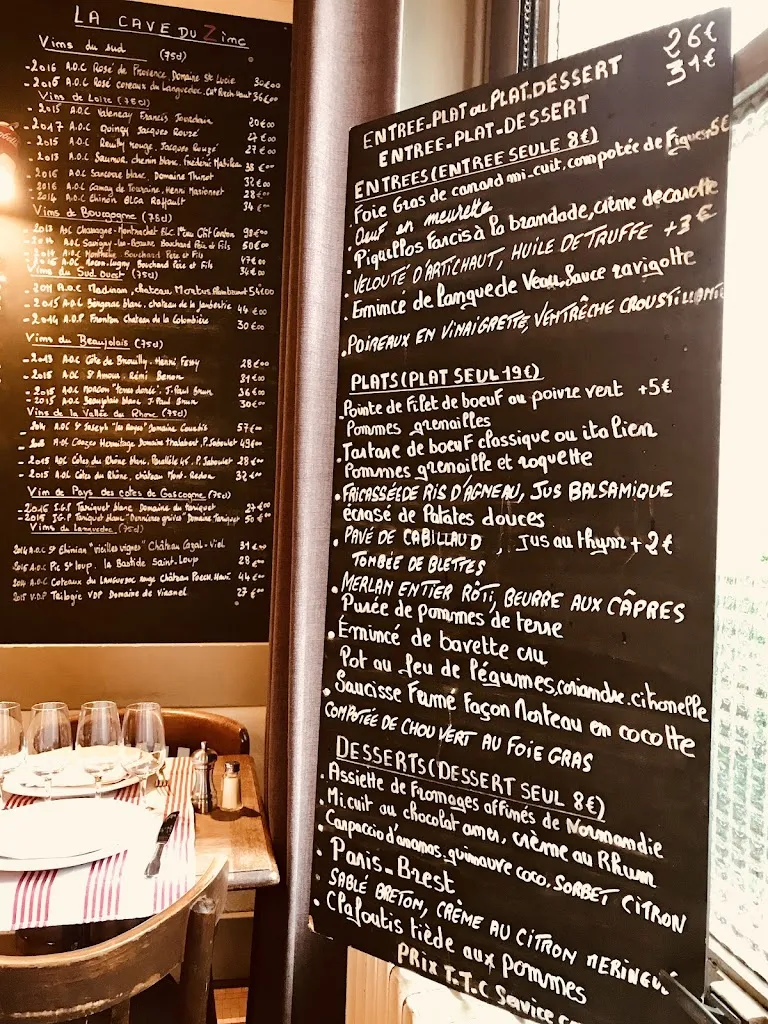 LA CAVE DU Zinc
Vins du sud (75cl)
-2016 A.O.C Rosé de Provence, Domaine Ste Lucie 30€00
-2016 A.O.C Rosé coteaux du Languedoc, Puech-Haut 36€00
Vins de Loire (75cl)
-2015 A.O.C Valençay Francis Jourdain 20€00
-2017 A.O.C Quincy Jacques Rouzé 27€00
-2015 A.O.C Reuilly rouge, Jacques Rouzé 27€00
-2013 A.O.C Saumur, chenin blanc, Frédéric Mabileau 38€00
-2016 A.O.C Sancerre blanc, Domaine Thirot 32€00
-2016 A.O.C Gamay de Touraine, Henri Marionnet 28€00
-2014 A.O.C Chinon Olga Raffault 34€00
Vins de Bourgogne (75cl)
-2013 AOC Chassagne-Montrachet BLC 1er Cru 90€00
A.O.C Savigny-les-Beaune Bouchard Père et Fils 50€00
A.O.C Monthelie Bouchard Père et Fils 47€00
A.O.C Macon-Lugny Bouchard Père et Fils 34€00
Vins du Sud Ouest (75cl)
2011 A.O.C Madiran, chateau Montus 54€00
-2015 A.O.C Bergerac blanc, chateau de la Jaubertie 44€00
-2014 A.O.P Fronton Chateau de la Colombière 30€00
Vins du Beaujolais (75cl)
-2013 A.O.C Côte de Brouilly. Henri Fessy 28€00
-2015 A.O.C St Amour, Rémi Benon 31€00
-2015 A.O.C MORGON "terres dorées" J.Paul Brun 36€00
-2015 A.O.C Beaujolais blanc J.Paul Brun 30€00
Vins de la Vallée du Rhone (75cl)
2014 A.O.C St Joseph Domaine Courbis 57€00
A.O.C Crozes Hermitage Domaine thalabert, P.Jaboulet 49€00
-2015 AOC Côtes du Rhône blanc, Parallèle 45, P.Jaboulet 28€00
-2015 A.O.C Côtes du Rhône, château Mont-Redon 32€00
Vin de Pays des cotes de Gascogne (75cl)
-2016 I.G.P Tariquet blanc Domaine du tariquet 27€00
-2015 I.G.P Tariquet blanc "Dernières grives" Domaine Tariquet 50€00
Vins du Languedoc (75cl)
2014 A.O.C St Chinian "vieilles vignes" Château Cazal-Viel 31€00
A.O.C Pic St Loup, la Bastide Saint Loup 28€00
2014 A.O.C Coteaux du Languedoc rouge Château Puech Haut 44€00
2015 V.D.P Trilogie VDP Domaine de 27€00
ENTREE-PLAT ou PLAT-DESSERT 26€
ENTREE-PLAT-DESSERT 31€
ENTREES (ENTREE SEULE 8€)
Foie Gras de canard mi-cuit, compotée de Figues +5€
. Oeuf en meurette
. Piquillos Farcis à la brandade, crème de carotte
. VELOUTÉ D'ARTICHAUT, HUILE DE TRUFFE +3€
. Émincé de langue de Veau, Sauce ravigotte
. POIREAUX EN VINAIGRETTE, VENTRÊCHE CROUSTILLANTE
PLATS (PLAT SEUL 19€)
. Pointe de Filet de boeuf au poivre vert +5€
Pommes grenailles
. Tartare de boeuf classique ou italien
Pommes grenaille et roquette
. FRICASSÉE DE RIS D'AGNEAU, JUS BALSAMIQUE
écrasé de Patates douces
. PAVÉ DE CABILLAUD, Jus au thym +2€
TOMBÉE DE BLETTES
. MERLAN ENTIER RÔTI, BEURRE AUX CÂPRES
Purée de pommes de terre
. Émincé de bavette cru
Pot au feu de légumes, coriandre, citronelle
. Saucisse Fumé Façon Morteau en cocotte
COMPOTÉE DE CHOU VERT AU FOIE GRAS
DESSERTS (DESSERT SEUL 8€)
. Assiette de Fromages affinés de Normandie
. Mi.cuit au chocolat amer, crème au Rhum
. Carpaccio d'ananas, guimauve coco, SORBET CITRON
. Paris-Brest
. SABLÉ BRETON, CRÈME AU CITRON MERINGUÉ
. Clafoutis tiède aux pommes
PRIX T.T.C Service